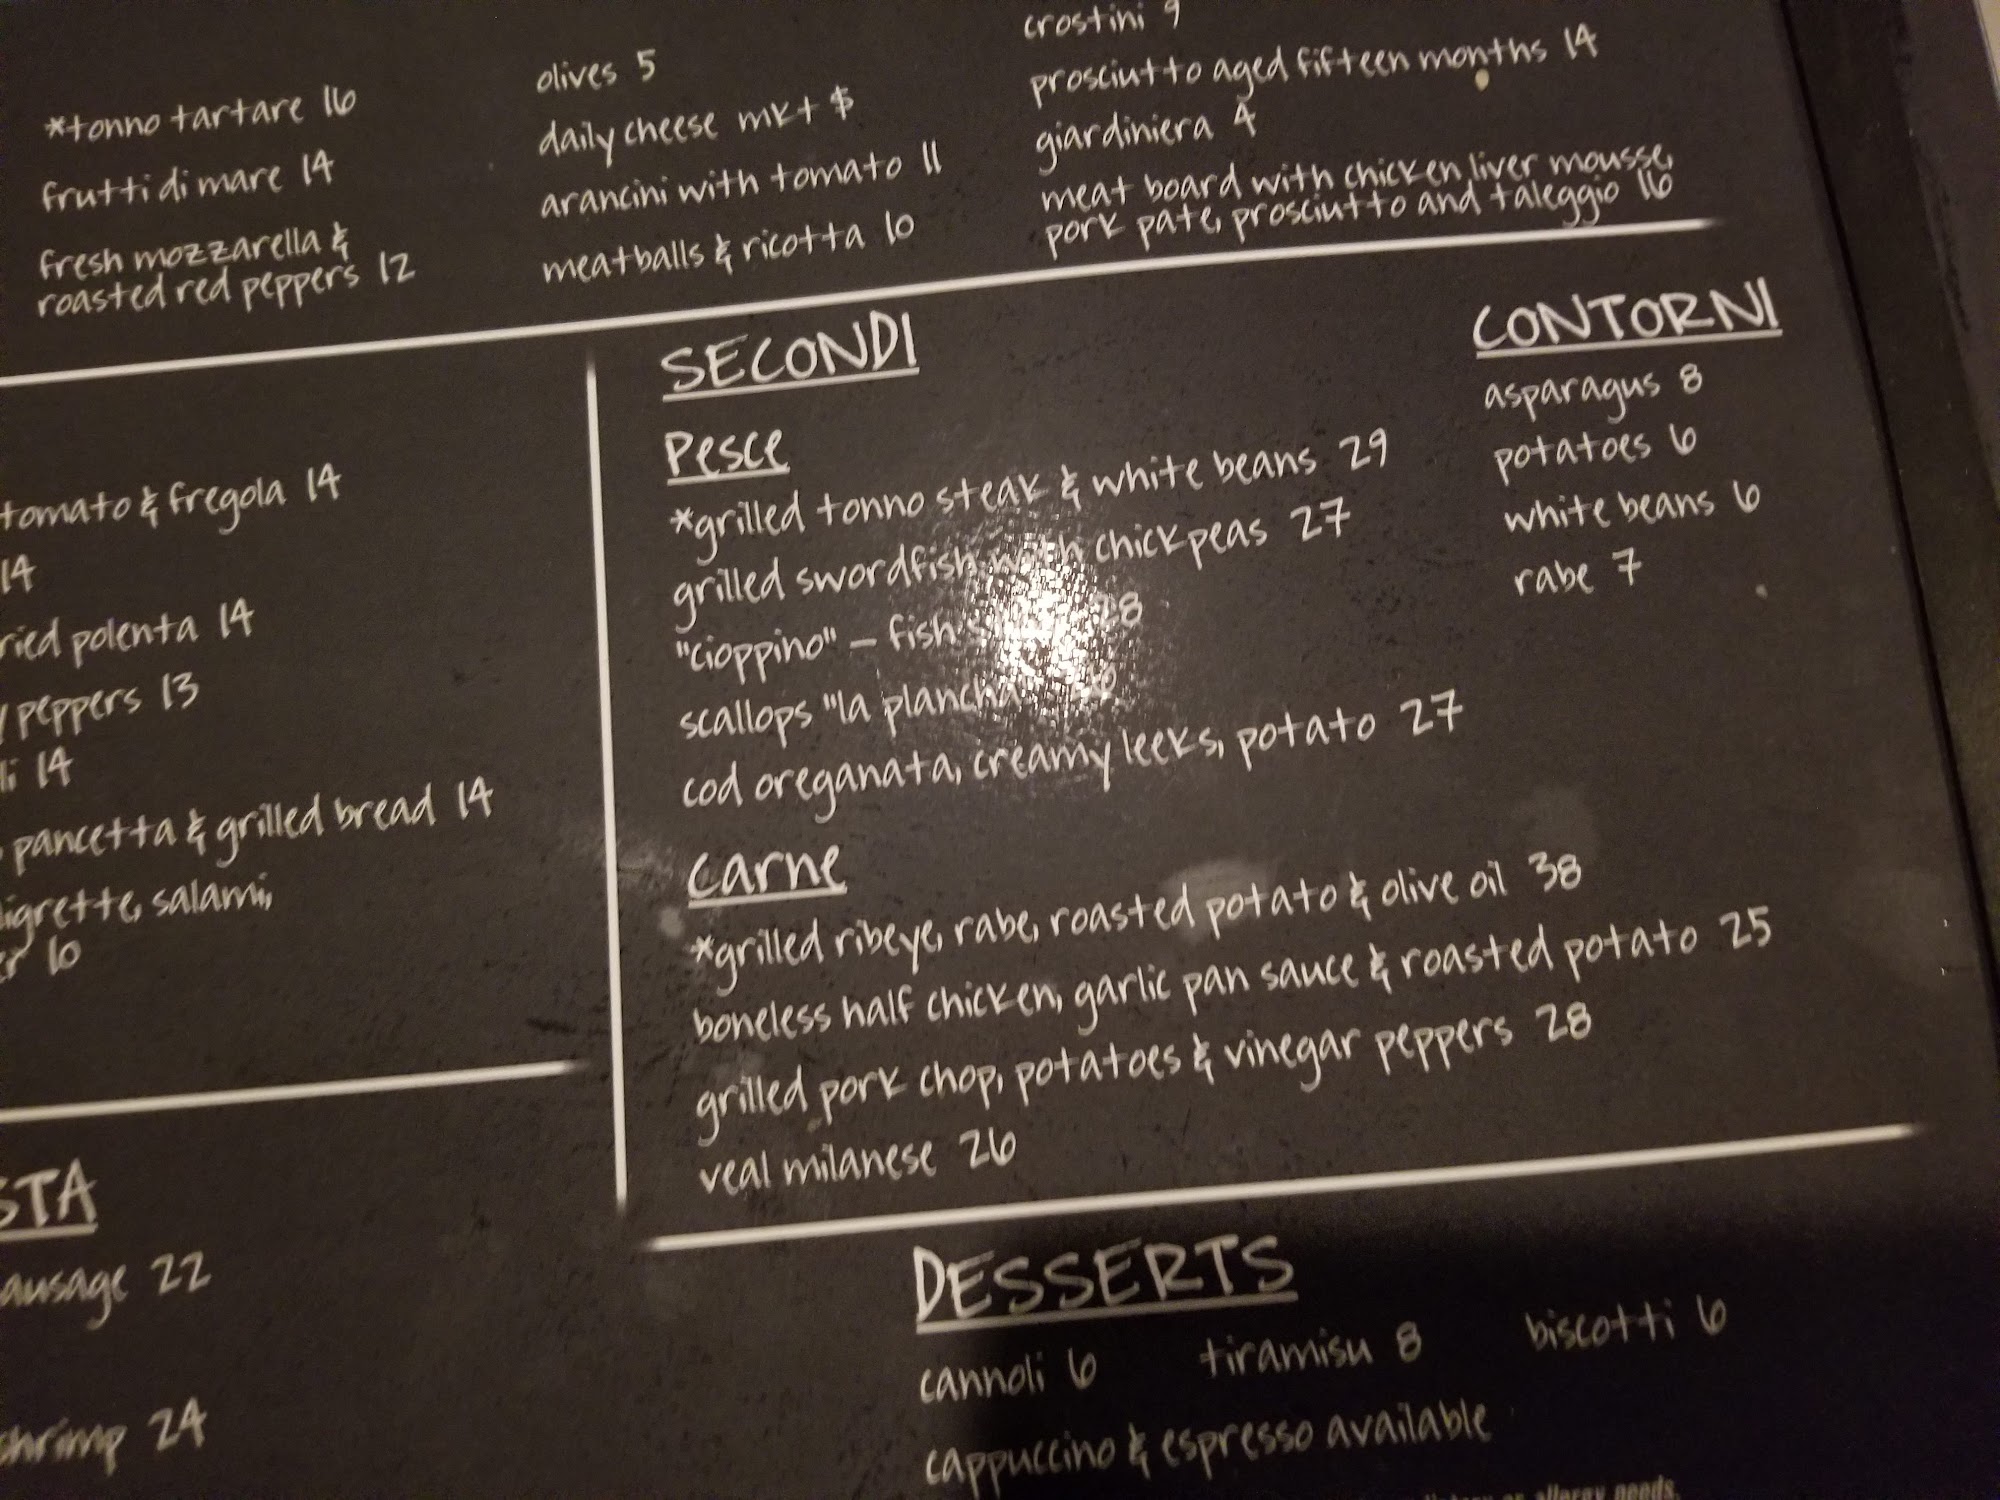 crostini 9
*tonno tartare 16
olives 5
prosciutto aged fifteen months 14
frutti di mare 14
daily cheese mkt $
giardiniera 4
fresh mozzarella &
roasted red peppers 12
arancini with tomato 11
meatballs & ricotta 10
meat board with chicken liver mousse,
pork pate, prosciutto and taleggio 16
tomato & fregola 14
14
polenta 14
peppers 13
14
pancetta & grilled bread 14
salami,
10
SECONDI
Pesce
*grilled tonno steak & white beans 29
grilled swordfish with chickpeas 27
"cioppino" – fish 28
scallops "la plancha"
cod oreganata, creamy leeks, potato 27
Carne
*grilled ribeye, rabe, roasted potato & olive oil 38
boneless half chicken, garlic pan sauce & roasted potato 25
grilled pork chop, potatoes & vinegar peppers 28
veal milanese 26
CONTORNI
asparagus 8
potatoes 6
white beans 6
rabe 7
STA
ausage 22
shrimp 24
DESSERTS
cannoli 6 tiramisu 8 biscotti 6
cappuccino & espresso available
or allergy needs.